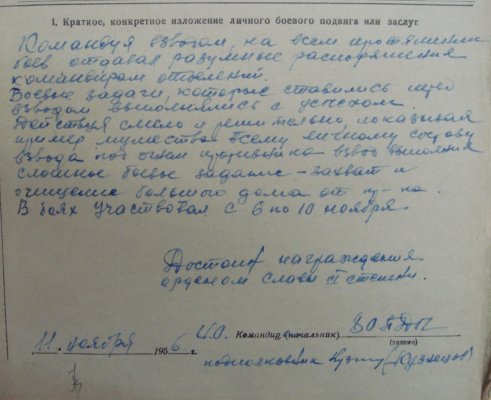 I. Краткое, конкретное изложение личного боевого подвига или заслуг
Командуя взводом, на всем протяжении
боев отдавал разумные распоряжения
командирам отделений.
Боевые задачи, которые ставились перед
взводом выполнялись с успехом.
Действуя смело и решительно, показывая
пример мужества всему личному составу
взвода под огнем противника взвод выполнил
сложное боевое задание – захват и
очищение большого дома от пр-ка.
В боях участвовал с 6 по 10 ноября.
Достоин награждения
орденом славы
степени.
11 ноября 1956 г.
Командир (начальник)
(звание)
подполковник (Кузнецов)